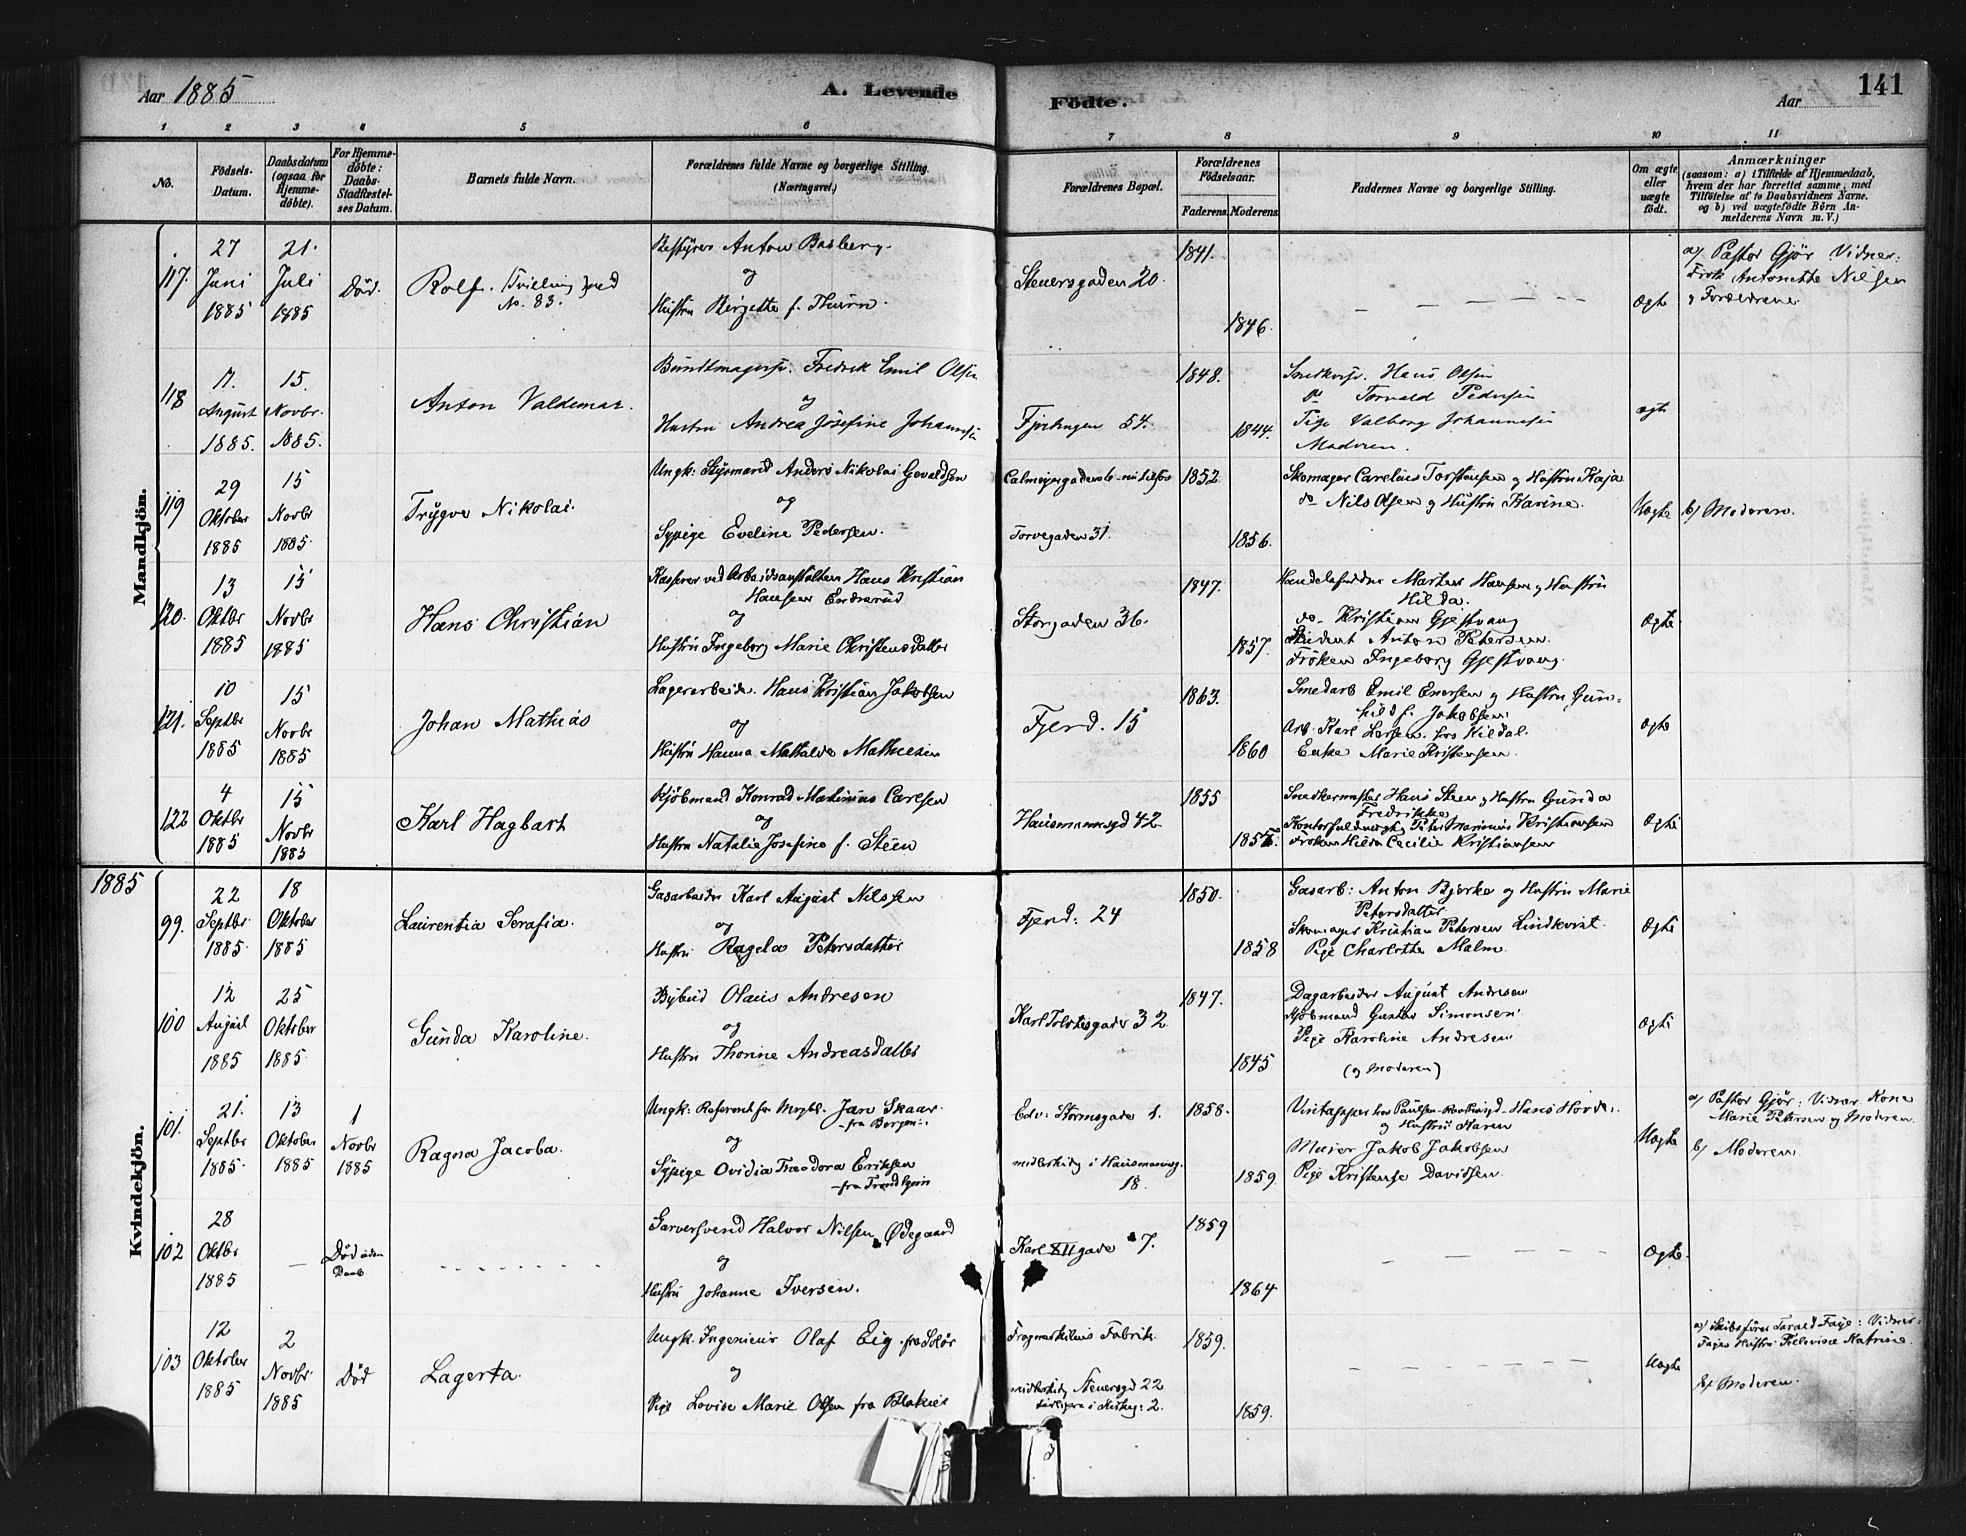 Aar 1885
A. Levende
Födte.
Aar
141
1 2 3 4 5 6 7 8 9 10 11
No.
Födsels-Datum.
Daabsdatum (ogsaa for Hjemme-döbte).
For Hjemme-döbte: Daabs-Stadfæstel-ses Datum.
Barnets fulde Navn.
Forældrenes fulde Navne og borgerlige Stilling.
(Næringsvei.)
Forældrenes Bopæl.
Forældrenes Födselsaar.
Faderens. Moderens.
Faddernes Navne og borgerlige Stilling.
Om ægte eller uægte födt.
Anmærkninger
(saasom: a) i Tilfælde af Hjemmedaab,
hvem der har forrettet samme, med
Tilföielse af to Daabsvidners Navne,
og b) ved uægtefödte Börn An-
melderens Navn m. V.)
Mandkjön.
117. 27 Juni 1885
21. Juli 1885
Död.
Rolf. Tvilling med
No. 83.
Bestyrer Anton Basberg.
og
Hustru Birgitte f. Thurn.
Steuersgaden 20.
1841.
1846.
Ægte
a) Pastor Gjör Vidner:
Frk Antonette Nilsen
og Forældrene
118 17. August 1885.
15. Novbr. 1885.
Anton Valdemar.
Bundtmagersv. Fredrik Emil Olsen
og
Hustru Andrea Josefine Johannesen
Fjerdingen 54.
1848.
1844.
Snedkersv. Hans Olsen
do Torvald Pedersen
Pige Valborg Johannesen
Moderen.
ægte
119 29 Oktober 1885
15 Novbr 1885.
Trygve Nikolai.
Ungk: Styrmand Anders Nikolai Gevaldsen
og
Sypige Eveline Pedersen.
Torvegaden 31.
1852.
1856.
Skomager Carelius Torstensen og Hustru Kaja
do Nils Olsen og Hustru Karine.
Uægte
b) Moderen.
120. 13 Oktbr 1885
15 Novbr 1885
Hans Christian
Kasserer ved Arbeidsanstalten Hans Kristian
Hansen Enderud
og
Hustru Ingeborg Marie Christensdatter
Storgaden 36.
1847.
1857.
Martin Hansen og Hustru
Hilda.
do. Kristian Gjestvang
Student Anton Petersen.
Fröken Ingeborg Gjestvang.
Ægte
121. 10 Septbr 1885
15 Novbr 1885
Johan Mathias
Lagerarbeider. Hans Kristian Jakobsen
og
Hustru Hanna Mathilde Mathiesen
Fjerd. 15
1863.
1860
Smedarb Emil Enersen og Hustru Gun-
hild f. Jakobsen.
Arb. Karl Larsen. hos Kildal.
Enke Marie Kristensen.
Ægte
122 4 Oktbr 1885
15 Novbr 1885
Karl Hagbart
Kjöbmand Konrad Martinius Carlsen
og
Hustru Natalie Josefine f. Steen
Hausmannsgd 42
1855
1855.
Snedkermester Hans Steen og Hustru Gunda
Fredrikke
Kontorfuldmægtig Peter Marinius Kristiansen
Fröken Hilda Cecilie Kristiansen
Ægte
1885
Kvindekjön.
99. 22 Septbr. 1885
18 Oktober 1885
Laurentia Serafia.
Gasarbeider Karl August Nilssen
og
Hustru Ragela Petersdatter
Fjerd: 24
1850.
1858
Gasarb: Anton Bjerke og Hustru Marie
Petersdatter
Skomager Kristian Petersen Lindkvist.
Pige Charlotte Malm.
Ægte
100 12 August 1885
25 Oktober 1885
Gunda Karoline.
Bybud Olaus Andresen
og
Hustru Thorine Andreasdatter
32
1847.
1845
Dagarbeider August Andresen
Kjöbmand Gustav Simonsen
Pige Karoline Andresen
(og Moderen)
Ægte
101. 21. Septbr 1885.
13 Oktober 1885
1 Novbr 1885
Ragna Jacoba.
Ungk: Referent for Mrgbl. Jan Skaar.
- fra Bergen -
og
Sypige Ovidia Theodora Eriksen
- fra Trondhjem
Edv: Stormsgade 1.
midlertidig i Hausmannsg.
18.
1858.
1859.
Hans Hovde.
og Hustru Karen
Meier Jakob Jakobsen
Pige Kristense Davidsen.
Uægte
a) Pastor Gjör: Vidner Kone
Marie Petersen og Moderen.
b) Moderen
102 28 Oktbr 1885
Död uden Daab
Garversvend Halvor Nilsen Ødegaard
og
Hustru Johanne Iversen.
Karl XII gade 7.
1859
1864
Ægte.
103 12 Oktober 1885
2 Novbr. 1885
Död
Lagerta.
Ungk. Ingeniör Olaf Eig. fra Solör
og
Pige Lovise Marie Olsen fra Blakier
Frognerkilens Fabrik.
midlertidig Steuersgd 22
1859.
1859.
Uægte
b) Moderen.